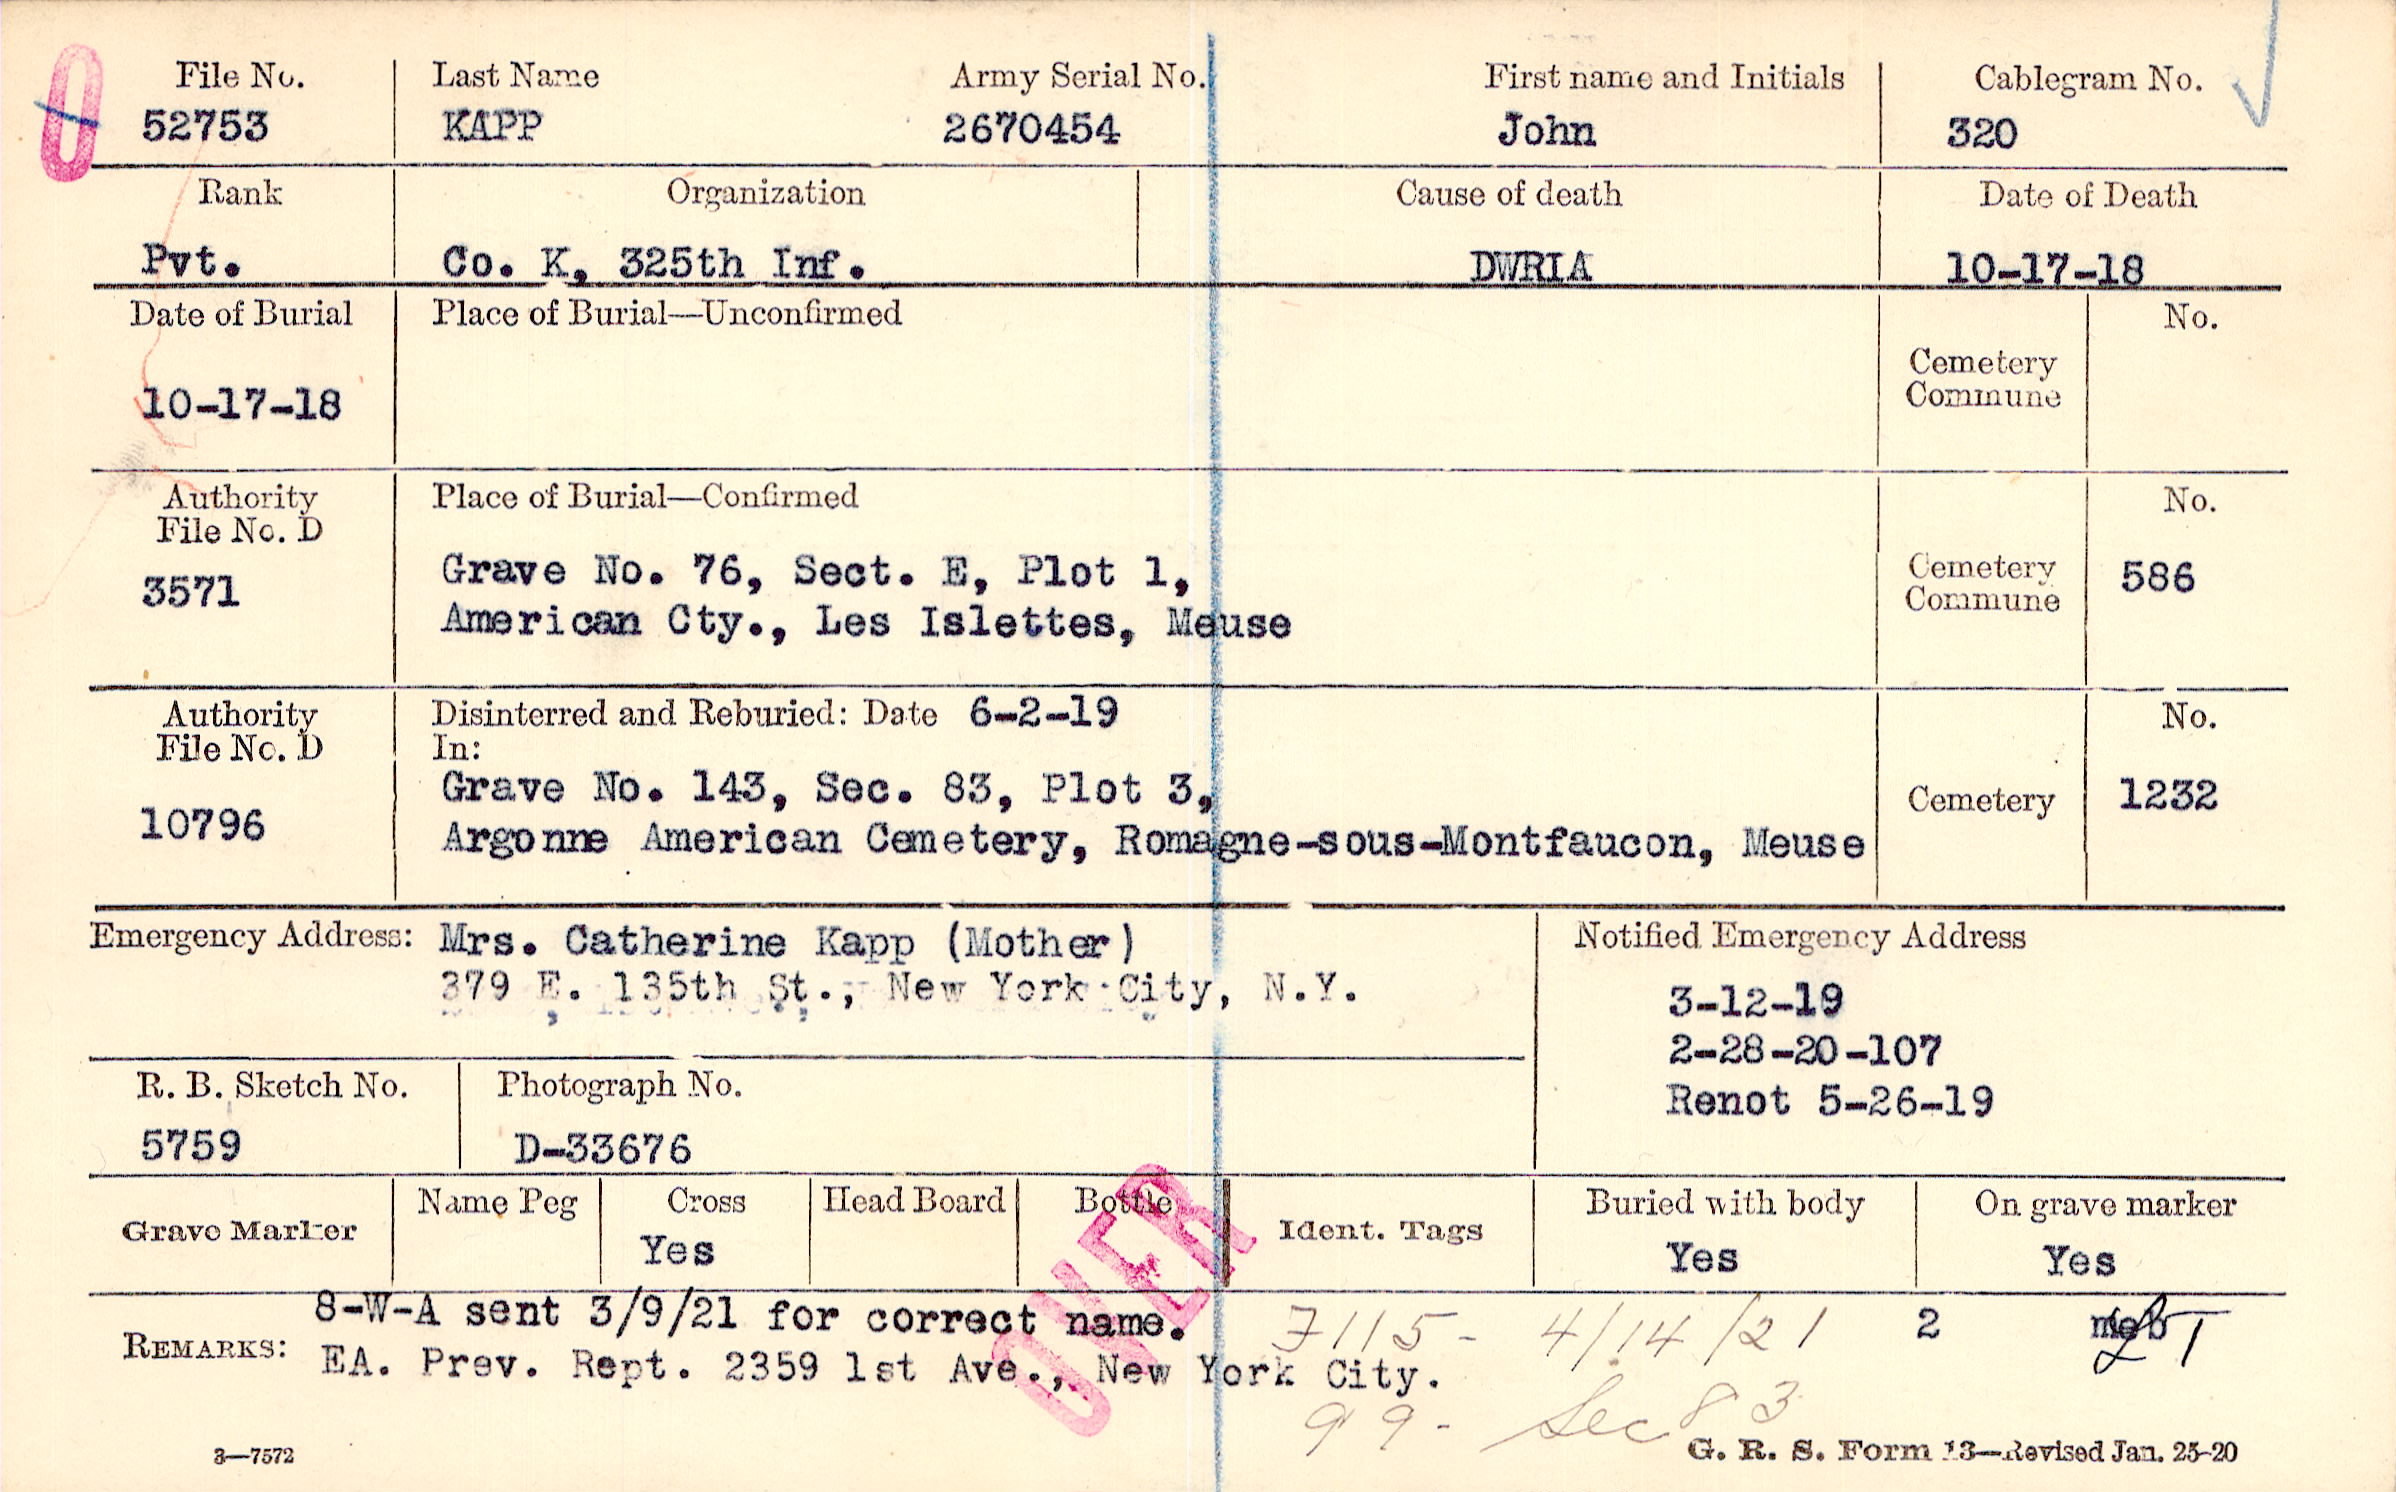 File No. Last Name Army Serial No. First name and Initials Cablegram No.
52753 KAPP 2670454 John 320
Rank Organization Cause of death Date of Death
Pvt. Co. K, 325th Inf. DWRIA 10-17-18
Date of Burial Place of Burial—Unconfirmed No.
Cemetery
Commune
10-17-18
Authority Place of Burial—Confirmed No.
File No. D
3571 Grave No. 76, Sect. E, Plot 1, Cemetery 586
American Cty., Les Islettes, Meuse Commune
Authority Disinterred and Reburied: Date 6-2-19 No.
File No. D In:
Grave No. 143, Sec. 83, Plot 3, Cemetery 1232
10796 Argonne American Cemetery, Romagne-sous-Montfaucon, Meuse
Emergency Address: Mrs. Catherine Kapp (Mother) Notified Emergency Address
379 E. 135th St., New York City, N.Y. 3-12-19
2-28-20-107
R. B. Sketch No. Photograph No. Renot 5-26-19
5759 D-33676
Grave Marker Name Peg Cross Head Board Bottle Ident. Tags Buried with body On grave marker
Yes Yes Yes
OVER
8-W-A sent 3/9/21 for correct name. 7115- 4/14/21 2
REMARKS: EA. Prev. Rept. 2359 1st Ave., New York City.
99- Sec 83
3—7572 G. R. S. Form 13—Revised Jan. 25-20